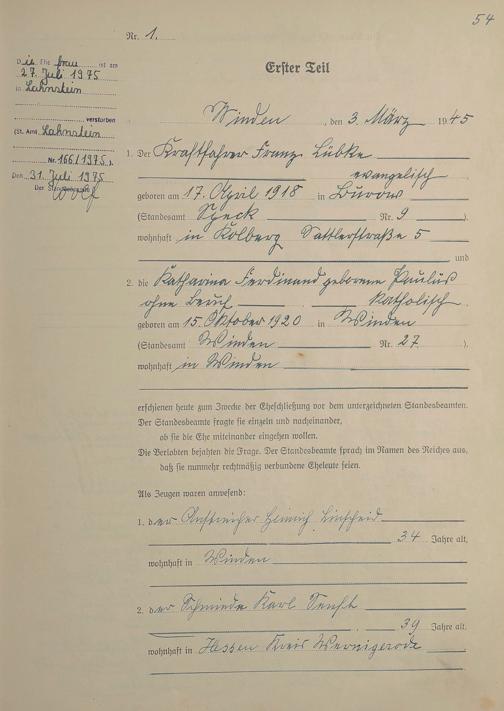 54
Nr. 1.
Die Ehefrau ist am
27. Juli 1975
in Lahnstein
verstorben
(St. Amt. Lahnstein
Nr. 166/1975.).
Den 31. Juli 1975
Der Standesbeamte
Erster Teil
Winden, den 3. März 1945
1. Der Kraftfahrer Franz Lübke
evangelisch
geboren am 17. April 1918 in Burow
(Standesamt Speck Nr. 9 ).
wohnhaft in Kolberg Sattlerstraße 5
und
2. die Katharina Ferdinand geborene Paulus
ohne Beruf katholisch
geboren am 15. Oktober 1920 in Winden
(Standesamt Winden Nr. 27 ).
wohnhaft in Winden
erschienen heute zum Zwecke der Eheschließung vor dem unterzeichneten Standesbeamten.
Der Standesbeamte fragte sie einzeln und nacheinander,
ob sie die Ehe miteinander eingehen wollen.
Die Verlobten bejahten die Frage. Der Standesbeamte sprach im Namen des Reiches aus,
daß sie nunmehr rechtmäßig verbundene Eheleute seien.
Als Zeugen waren anwesend:
1. der Anstreicher Heinrich Linscheid
34 Jahre alt,
wohnhaft in Winden
2. der Schmiede Karl Senft
39 Jahre alt.
wohnhaft in Hessen Kreis Wernigerode